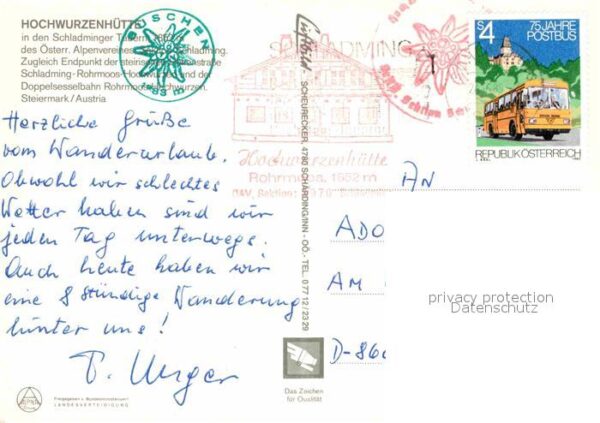 HOCHWURZENHÜTTE
in den Schladminger Tauern, 1852 m
des Österr. Alpenvereines Schladming.
Zugleich Endpunkt der steirischen straße
Schladming-Rohrmoos-Hochwurzen und der
Doppelsesselbahn Rohrmoos-Hochwurzen.
Steiermark/Austria
Herzliche Grüße
vom Wanderurlaub.
Obwohl wir schlechtes
Wetter haben sind wir
jeden Tag unterwegs.
Auch heute haben wir
eine 8 stündige Wanderung
hinter uns!
Unger
LANDESVERTEIDIGUNG
SCHLADMING
Hochwurzenhütte
Rohrmoos, 1852 m
Luftbild SCHEURECKER, 4780 SCHÄRDING/INN - OÖ. - TEL. 0 77 12 / 23 29
Das Zeichen
für Qualität
S4
75 JAHRE
POSTBUS
REPUBLIK ÖSTERREICH
AN
ADO
AM
D-86
privacy protection
Datenschutz